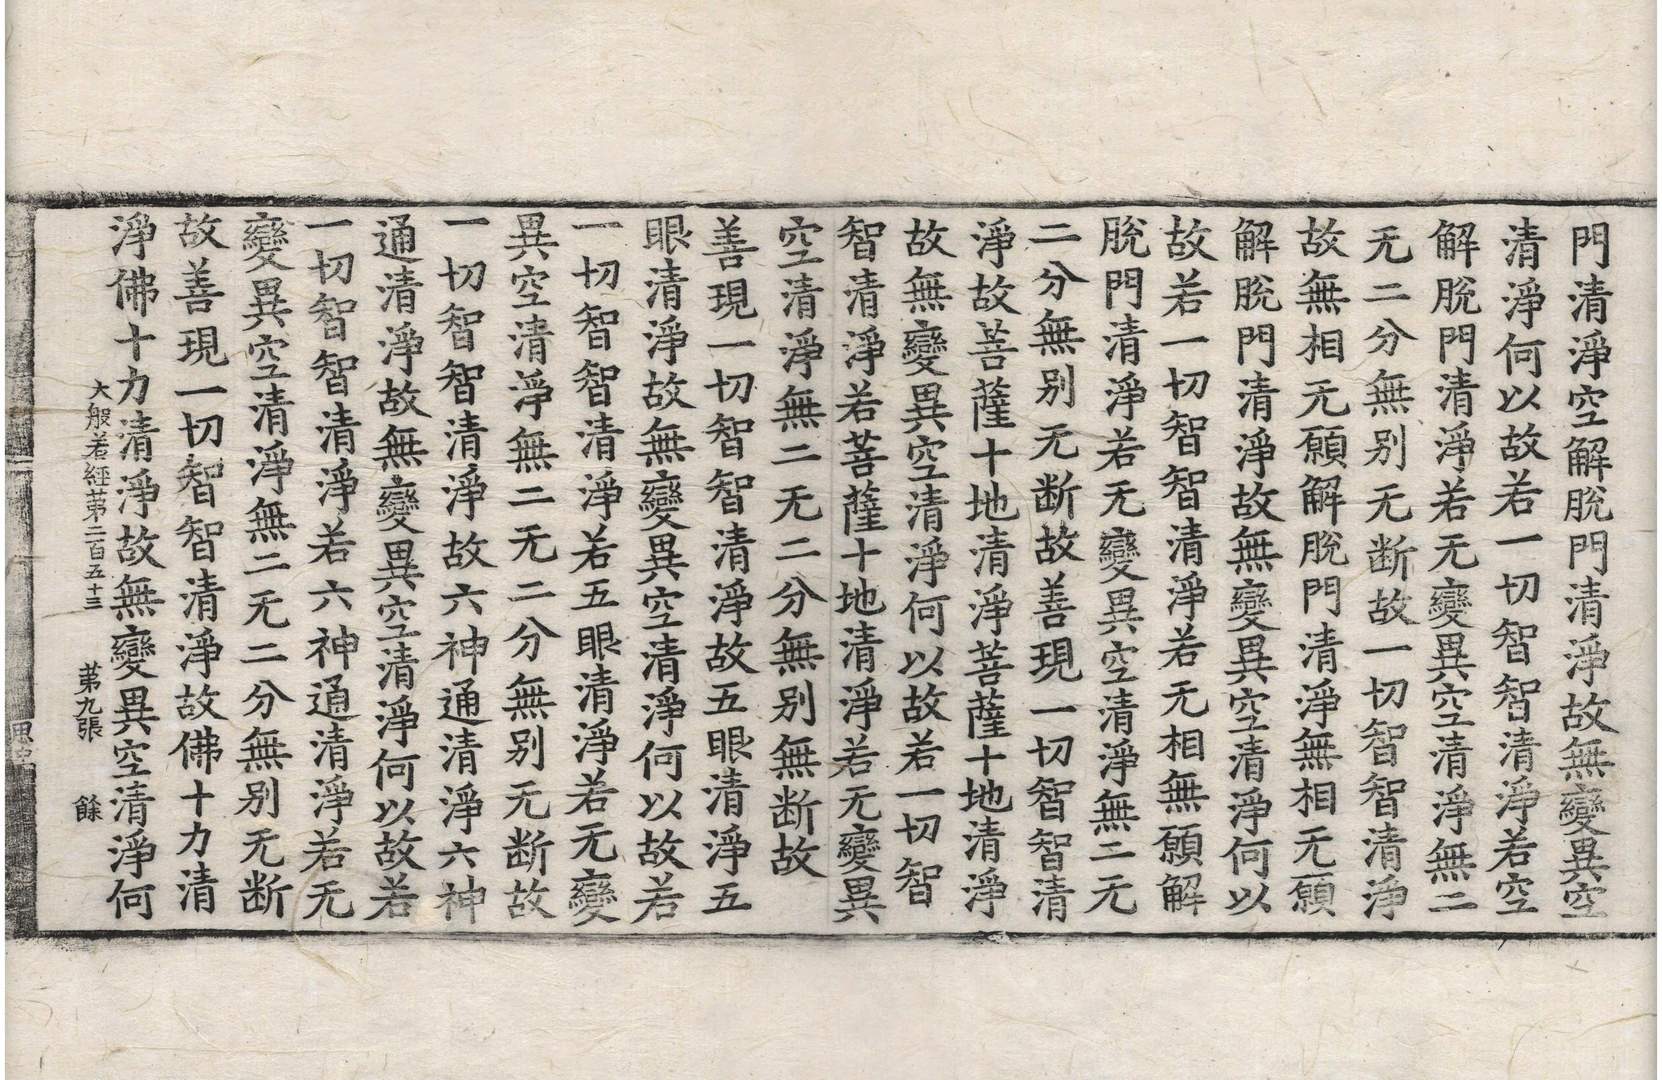 門清淨空解脫門清淨故無變異空
清淨何以故若一切智智清淨若空
解脫門清淨若无變異空清淨無二
无二分無别无断故一切智智清淨
故無相无願解脫門清淨無相无願
解脫門清淨故無變異空清淨何以
故若一切智智清淨若无相無願解
脫門清淨若无變異空清淨無二无
二分無别无断故善現一切智智清
淨故菩薩十地清淨菩薩十地清淨
故無變異空清淨何以故若一切智
智清淨若菩薩十地清淨若无變異
空清淨無二无二分無别無断故
善現一切智智清淨故五眼清淨五
眼清淨故無變異空清淨何以故若
一切智智清淨若五眼清淨若无變
異空清淨無二无二分無别无断故
一切智智清淨故六神通清淨六神
通清淨故無變異空清淨何以故若
一切智智清淨若六神通清淨若无
變異空清淨無二无二分無别无断
故善現一切智智清淨故佛十力清
淨佛十力清淨故無變異空清淨何
大般若經苐二百五十三 苐九張 餘